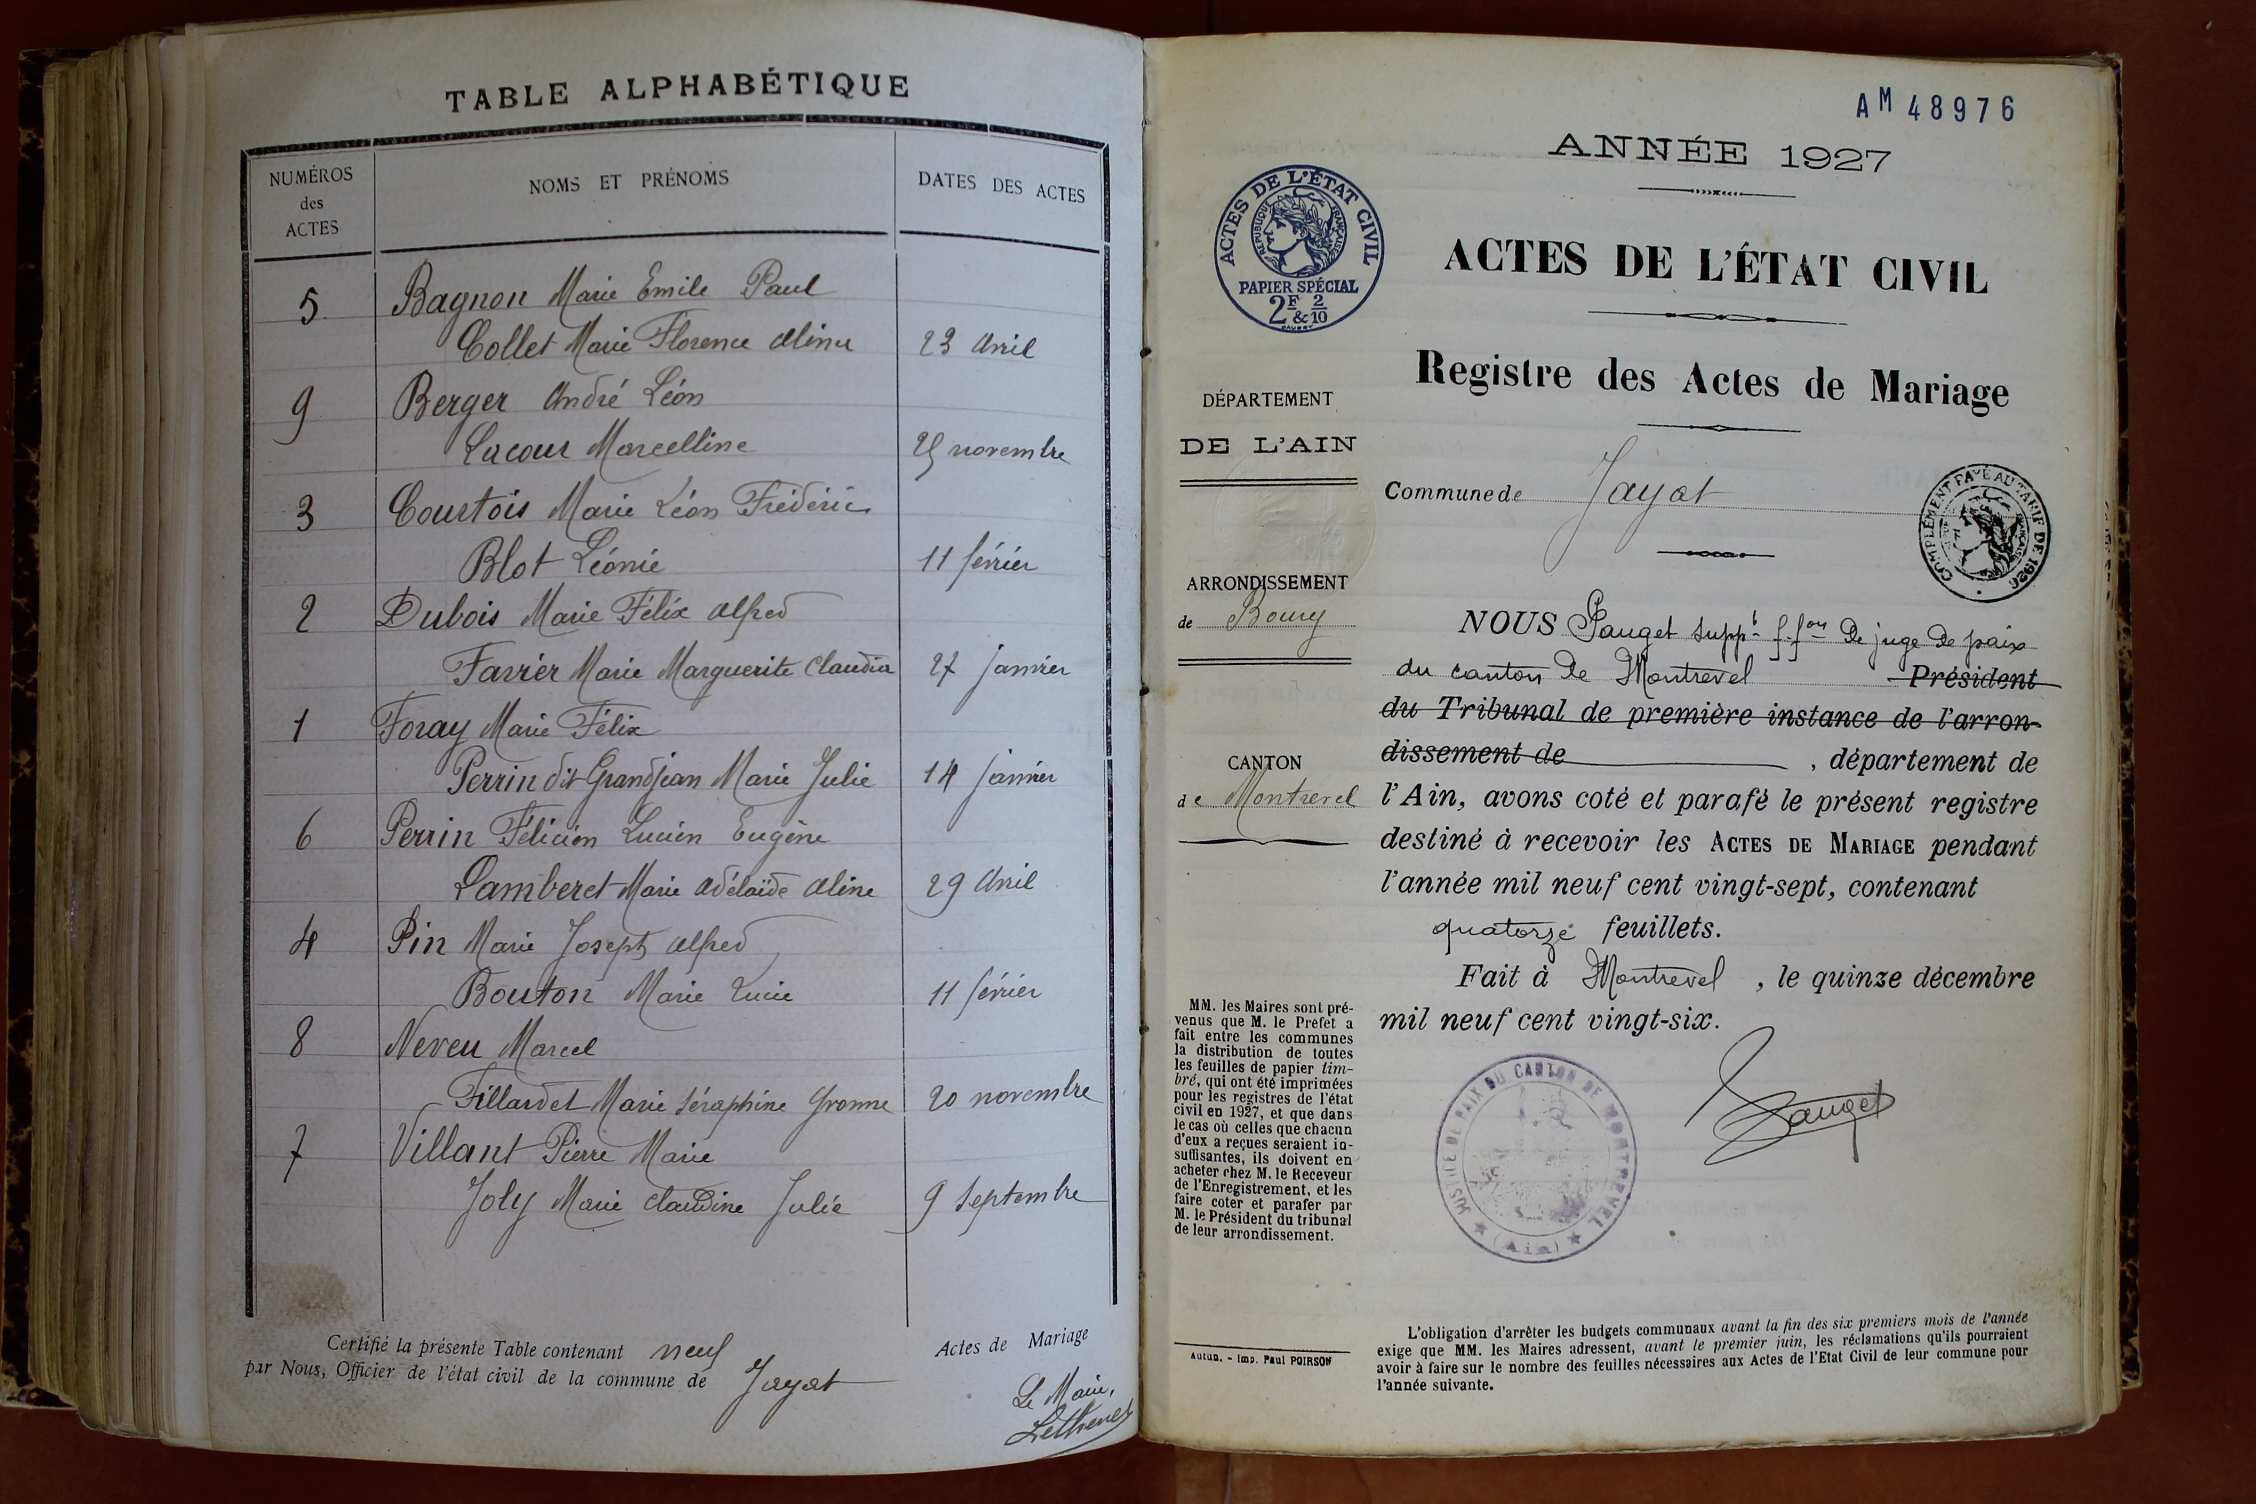 TABLE ALPHABÉTIQUE
NUMÉROS des ACTES
NOMS ET PRÉNOMS
DATES DES ACTES
5 Bagnon Marie Emile Paul
Collet Marie Florence Aline 23 Avril
9 Berger André Léon
Lacour Marcelline 25 novembre
3 Courtois Marie Léon Frédéric
Blot Léonie 11 février
2 Dubois Marie Félix Alfred
Favier Marie Marguerite Claudia 27 janvier
1 Foray Marie Félix
Perrin dit Grandjean Marie Julie 14 janvier
6 Perrin Félicien Lucien Eugène
Lamberet Marie Adélaïde Aline 29 Avril
4 Pin Marie Joseph Alfred
Bouton Marie Lucie 11 février
8 Neveu Marcel
Fillardet Marie Séraphine Yvonne 20 novembre
7 Villant Pierre Marie
Joly Marie Claudine Julie 9 Septembre
Certifié la présente Table contenant neuf Actes de Mariage
par Nous, Officier de l'état civil de la commune de Jayat
Le Maire,
AM 48976
ANNÉE 1927
ACTES DE L'ÉTAT CIVIL
RÉPUBLIQUE FRANÇAISE
PAPIER SPÉCIAL
2F & 2/10
ACTES DE L'ÉTAT CIVIL
Registre des Actes de Mariage
DÉPARTEMENT
DE L'AIN
Commune de Jayat
COMPLÉMENT PAYÉ AU TARIF DE 1926
ARRONDISSEMENT
de Bourg
CANTON
de Montrevel
NOUS Pauget suppt f.fon de juge de paix
du canton de Montrevel Président
du Tribunal de première instance de l'arron-
dissement de , département de
l'Ain, avons coté et parafé le présent registre
destiné à recevoir les ACTES DE MARIAGE pendant
l'année mil neuf cent vingt-sept, contenant
quatorze feuillets.
Fait à Montrevel , le quinze décembre
mil neuf cent vingt-six.
Pauget
JUSTICE DE PAIX DU CANTON DE MONTREVEL
(Ain)
MM. les Maires sont pré-
venus que M. le Préfet a
fait entre les communes
la distribution de toutes
les feuilles de papier tim-
bré, qui ont été imprimées
pour les registres de l'état
civil en 1927, et que dans
le cas où celles que chacun
d'eux a reçues seraient in-
suffisantes, ils doivent en
acheter chez M. le Receveur
de l'Enregistrement, et les
faire coter et parafer par
M. le Président du tribunal
de leur arrondissement.
Autun. - Imp. Paul POIRSON
L'obligation d'arrêter les budgets communaux avant la fin des six premiers mois de l'année
exige que MM. les Maires adressent, avant le premier juin, les réclamations qu'ils pourraient
avoir à faire sur le nombre des feuilles nécessaires aux Actes de l'Etat Civil de leur commune pour
l'année suivante.